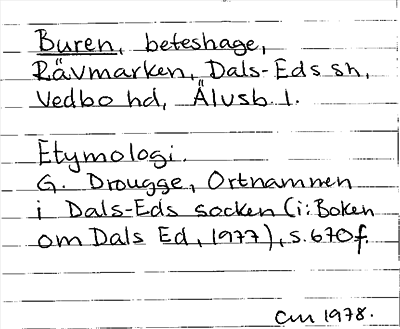 Buren, beteshage,
Rävmarken, Dals-Eds sn,
Vedbo hd, Älvsb l.
Etymologi.
G. Drougge, Ortnamnen
i Dals-Eds socken (i: Boken
om Dals Ed, 1977), s. 670f.
CM 1978.